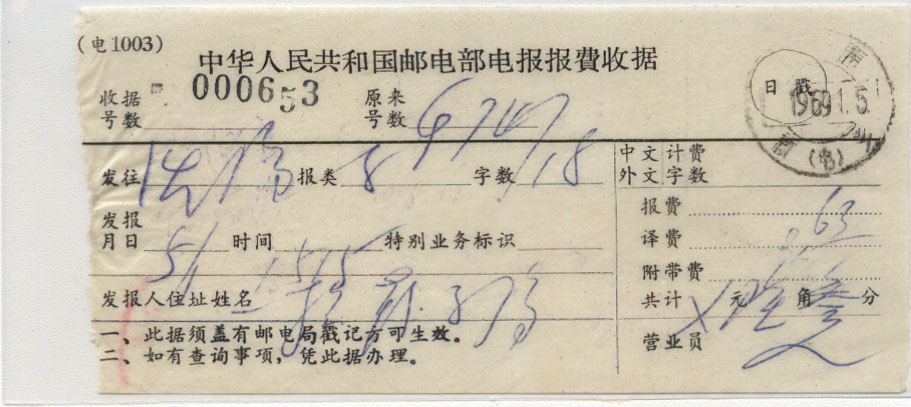 (电1003)
中华人民共和国邮电部电报报费收据
收据号数 000653 原来号数
日戳 1969.1.5
发往 报类 8 字数 18
中文计费
外文字数
发报月日 5/1 时间 1515 特别业务标识
报费 .63
译费
附带费
发报人住址姓名
共计 元 角 分
一、此据须盖有邮电局戳记方可生效。
二、如有查询事项,凭此据办理。
营业员